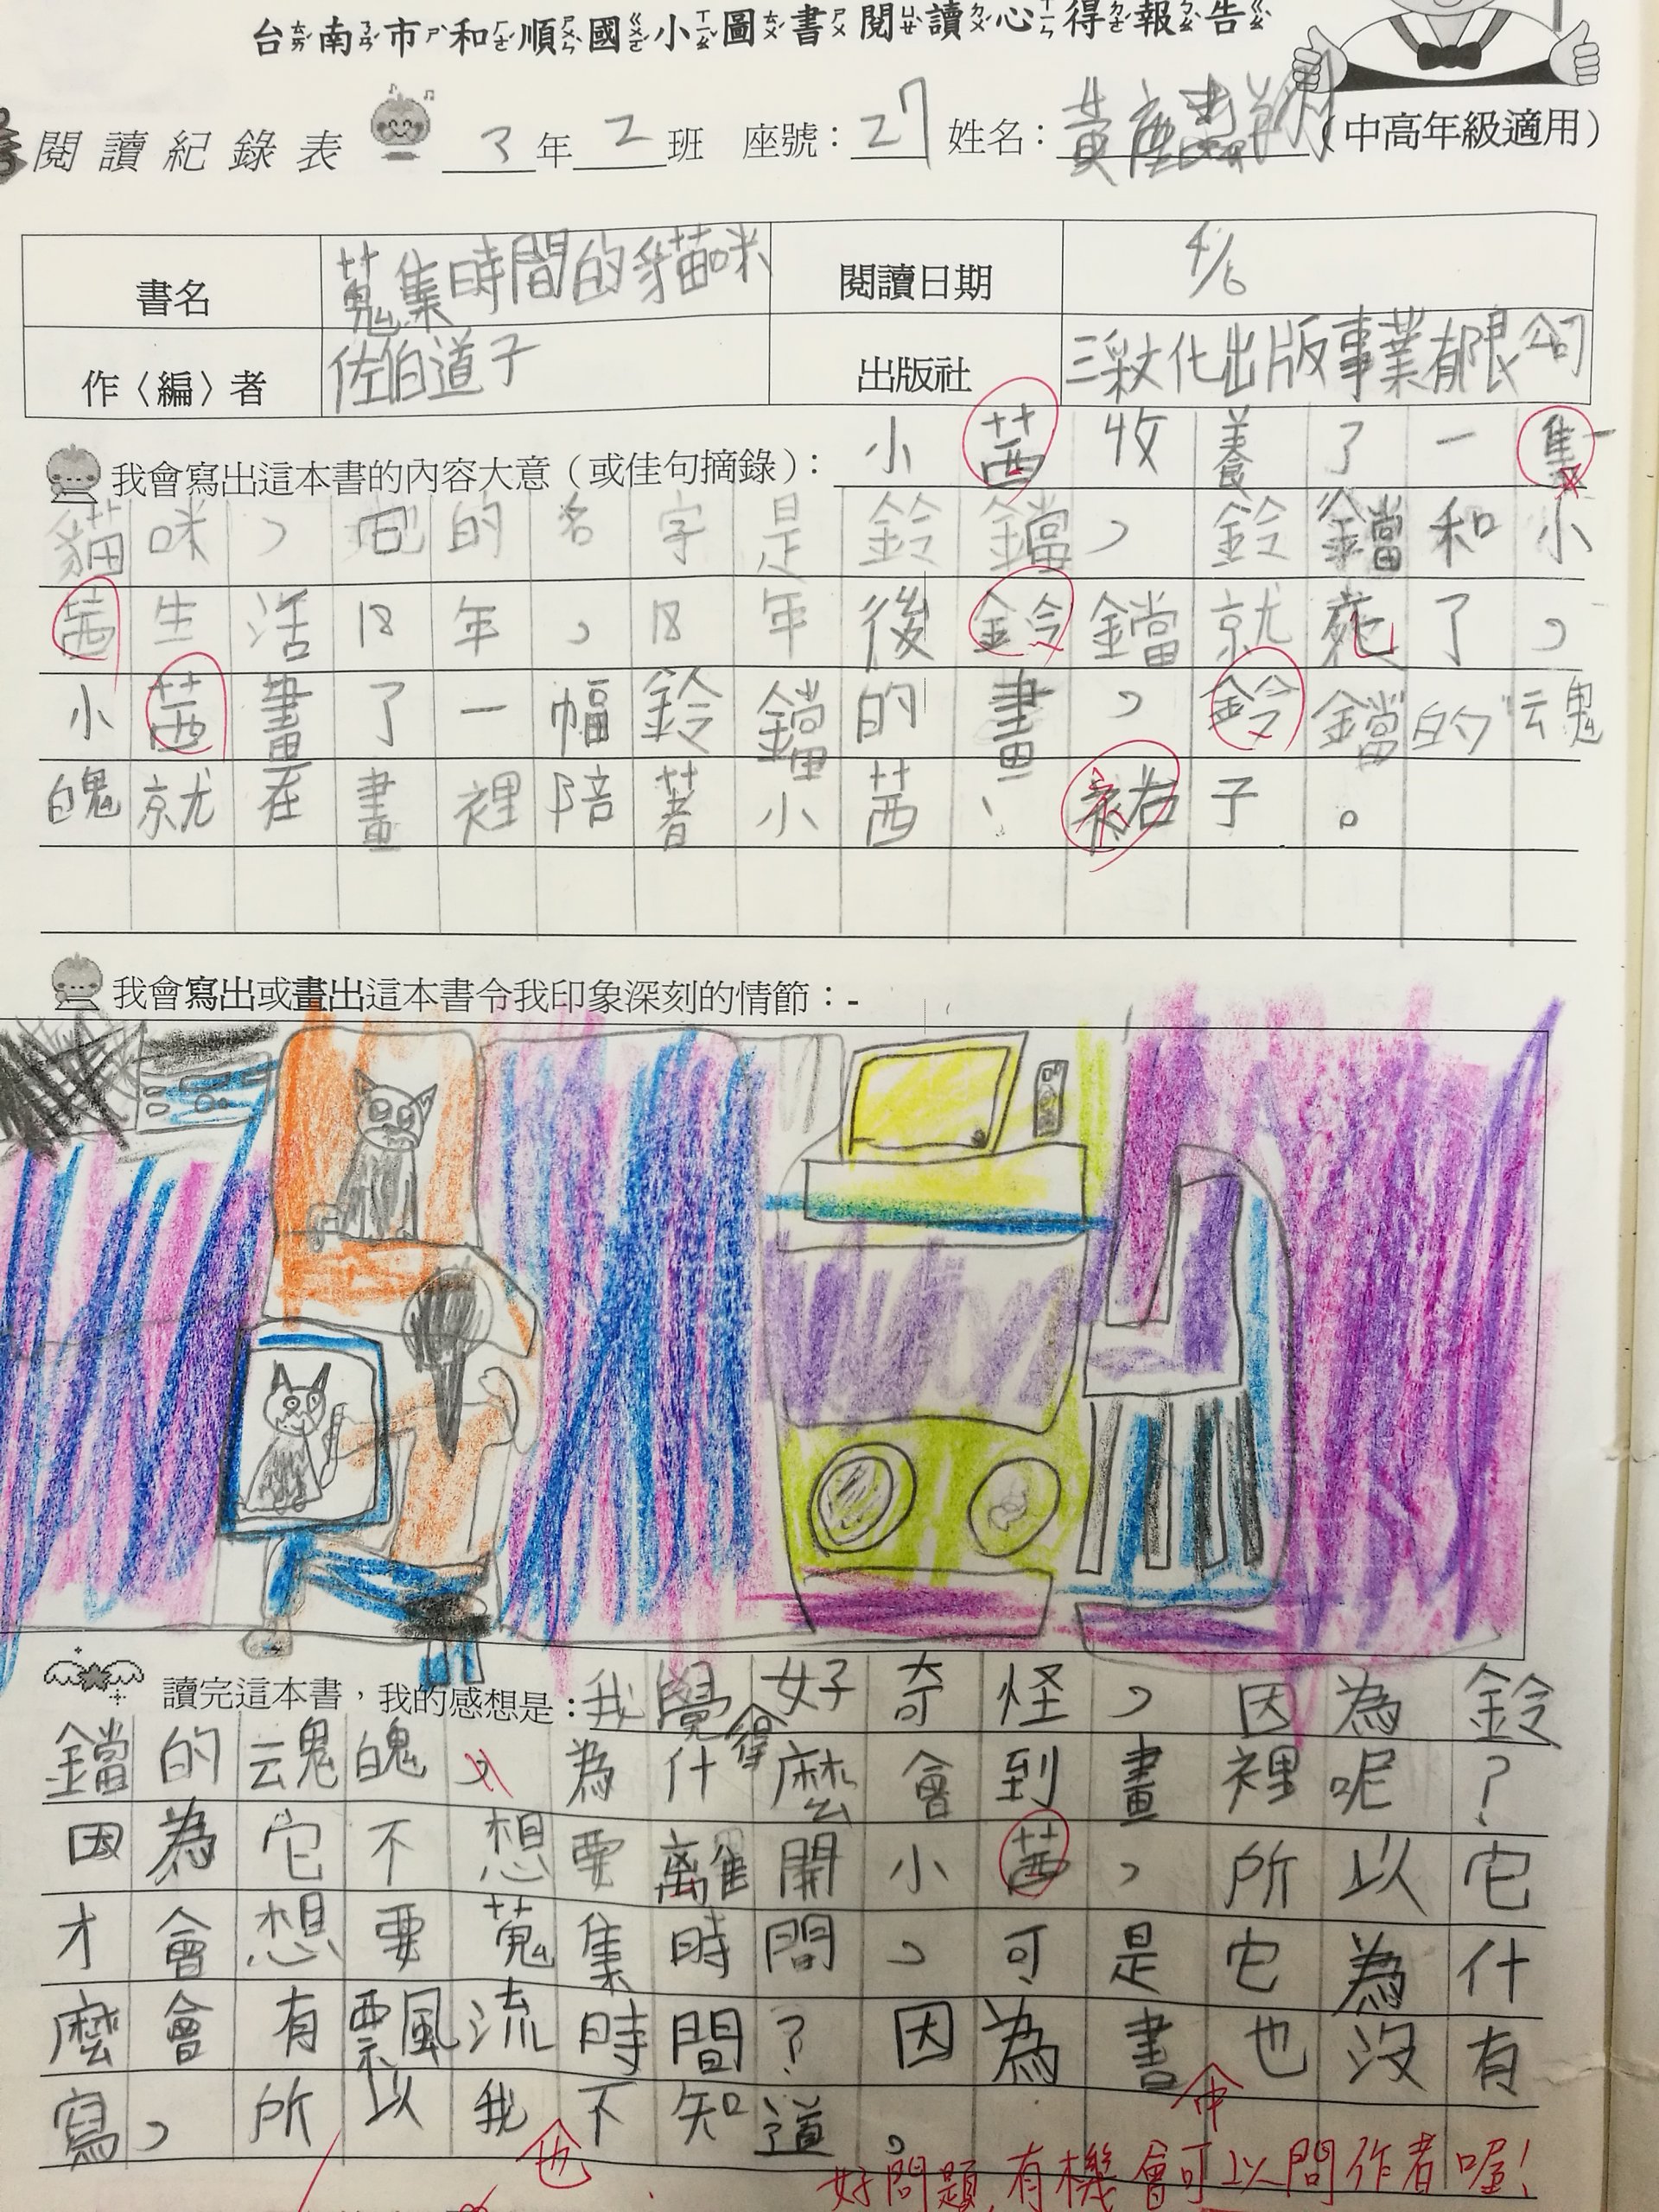 台南市和順國小圖書閱讀心得報告
閱讀紀錄表 3年2班 座號：27 姓名：黃 (中高年級適用)
書名 蒐集時間的貓咪 閱讀日期 4/6
作〈編〉者 佐伯道子 出版社 三采文化出版事業有限公司
我會寫出這本書的內容大意（或佳句摘錄）：小茜收養了一隻
貓咪，它的名字是鈴鐺，鈴鐺和小
茜生活18年，18年後鈴鐺就死了，
小茜畫了一幅鈴鐺的畫，鈴鐺的魂
魄就在畫裡陪著小茜、祐子。
我會寫出或畫出這本書令我印象深刻的情節：-
讀完這本書，我的感想是：我覺得好奇怪，因為鈴
鐺的魂魄，為什麼會到畫裡呢？
因為它不想要離開小茜，所以它
才會想要蒐集時間，可是它為什
麼會有飄流時間？因為書中也沒有
寫，所以我也不知道。
好問題，有機會可以問作者喔！